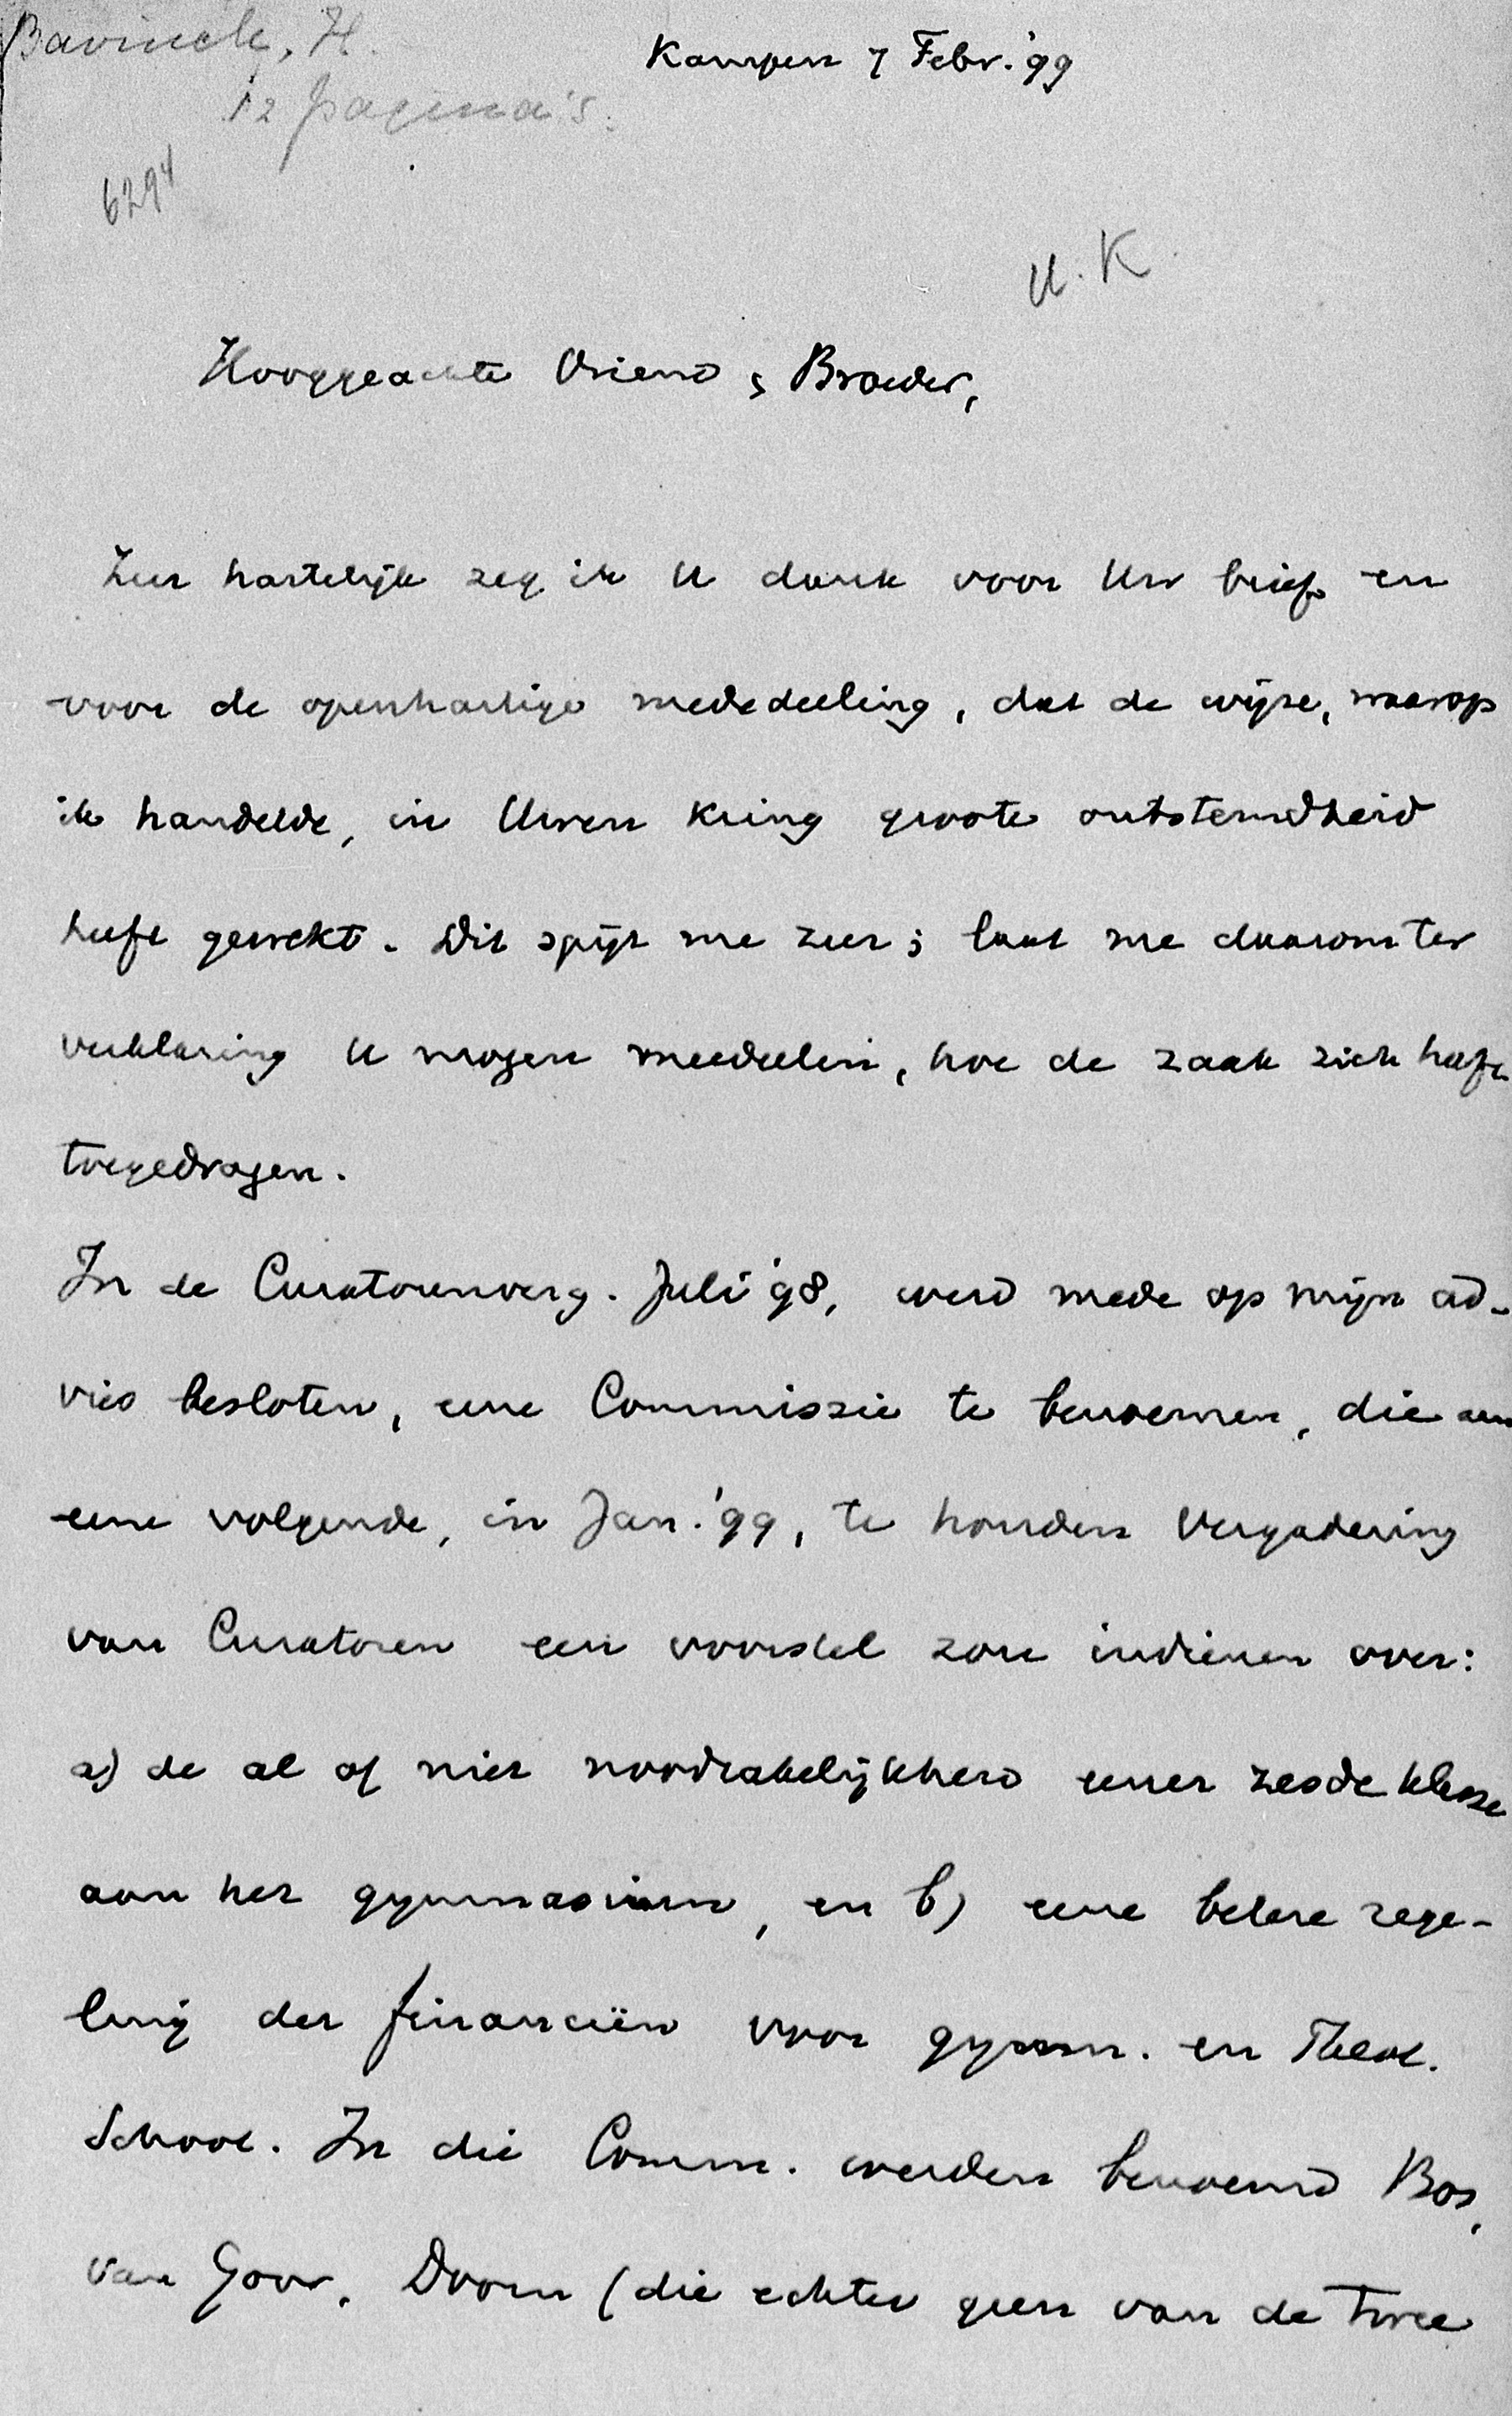 Bavinck, H.
12 pagina's.
6294
Kampen 7 Febr. '99
U. K.
Hooggeachte Vriend & Broeder,
Zeer hartelijk zeg ik U dank voor Uw brief en
voor de openhartige mededeeling, dat de wijze, waarop
ik handelde, in Uwen kring groote ontstemdheid
heeft gewekt. Dit spijt me zeer; laat me daarom ter
verklaring U mogen meedeelen, hoe de zaak zich heeft
toegedragen.
In de Curatorenverg. Juli '98, werd mede op mijn ad-
vies besloten, eene Commissie te benoemen, die aan
eene volgende, in Jan. '99, te houden Vergadering
van Curatoren een voorstel zou indienen over:
a) de al of niet noodzakelijkheid eener zesde klasse
aan het gymnasium, en b) eene betere rege-
ling der financiën voor gymn. en Theol.
School. In die Comm. werden benoemd Bos,
van Goor, Doorn (die echter geen van de twee